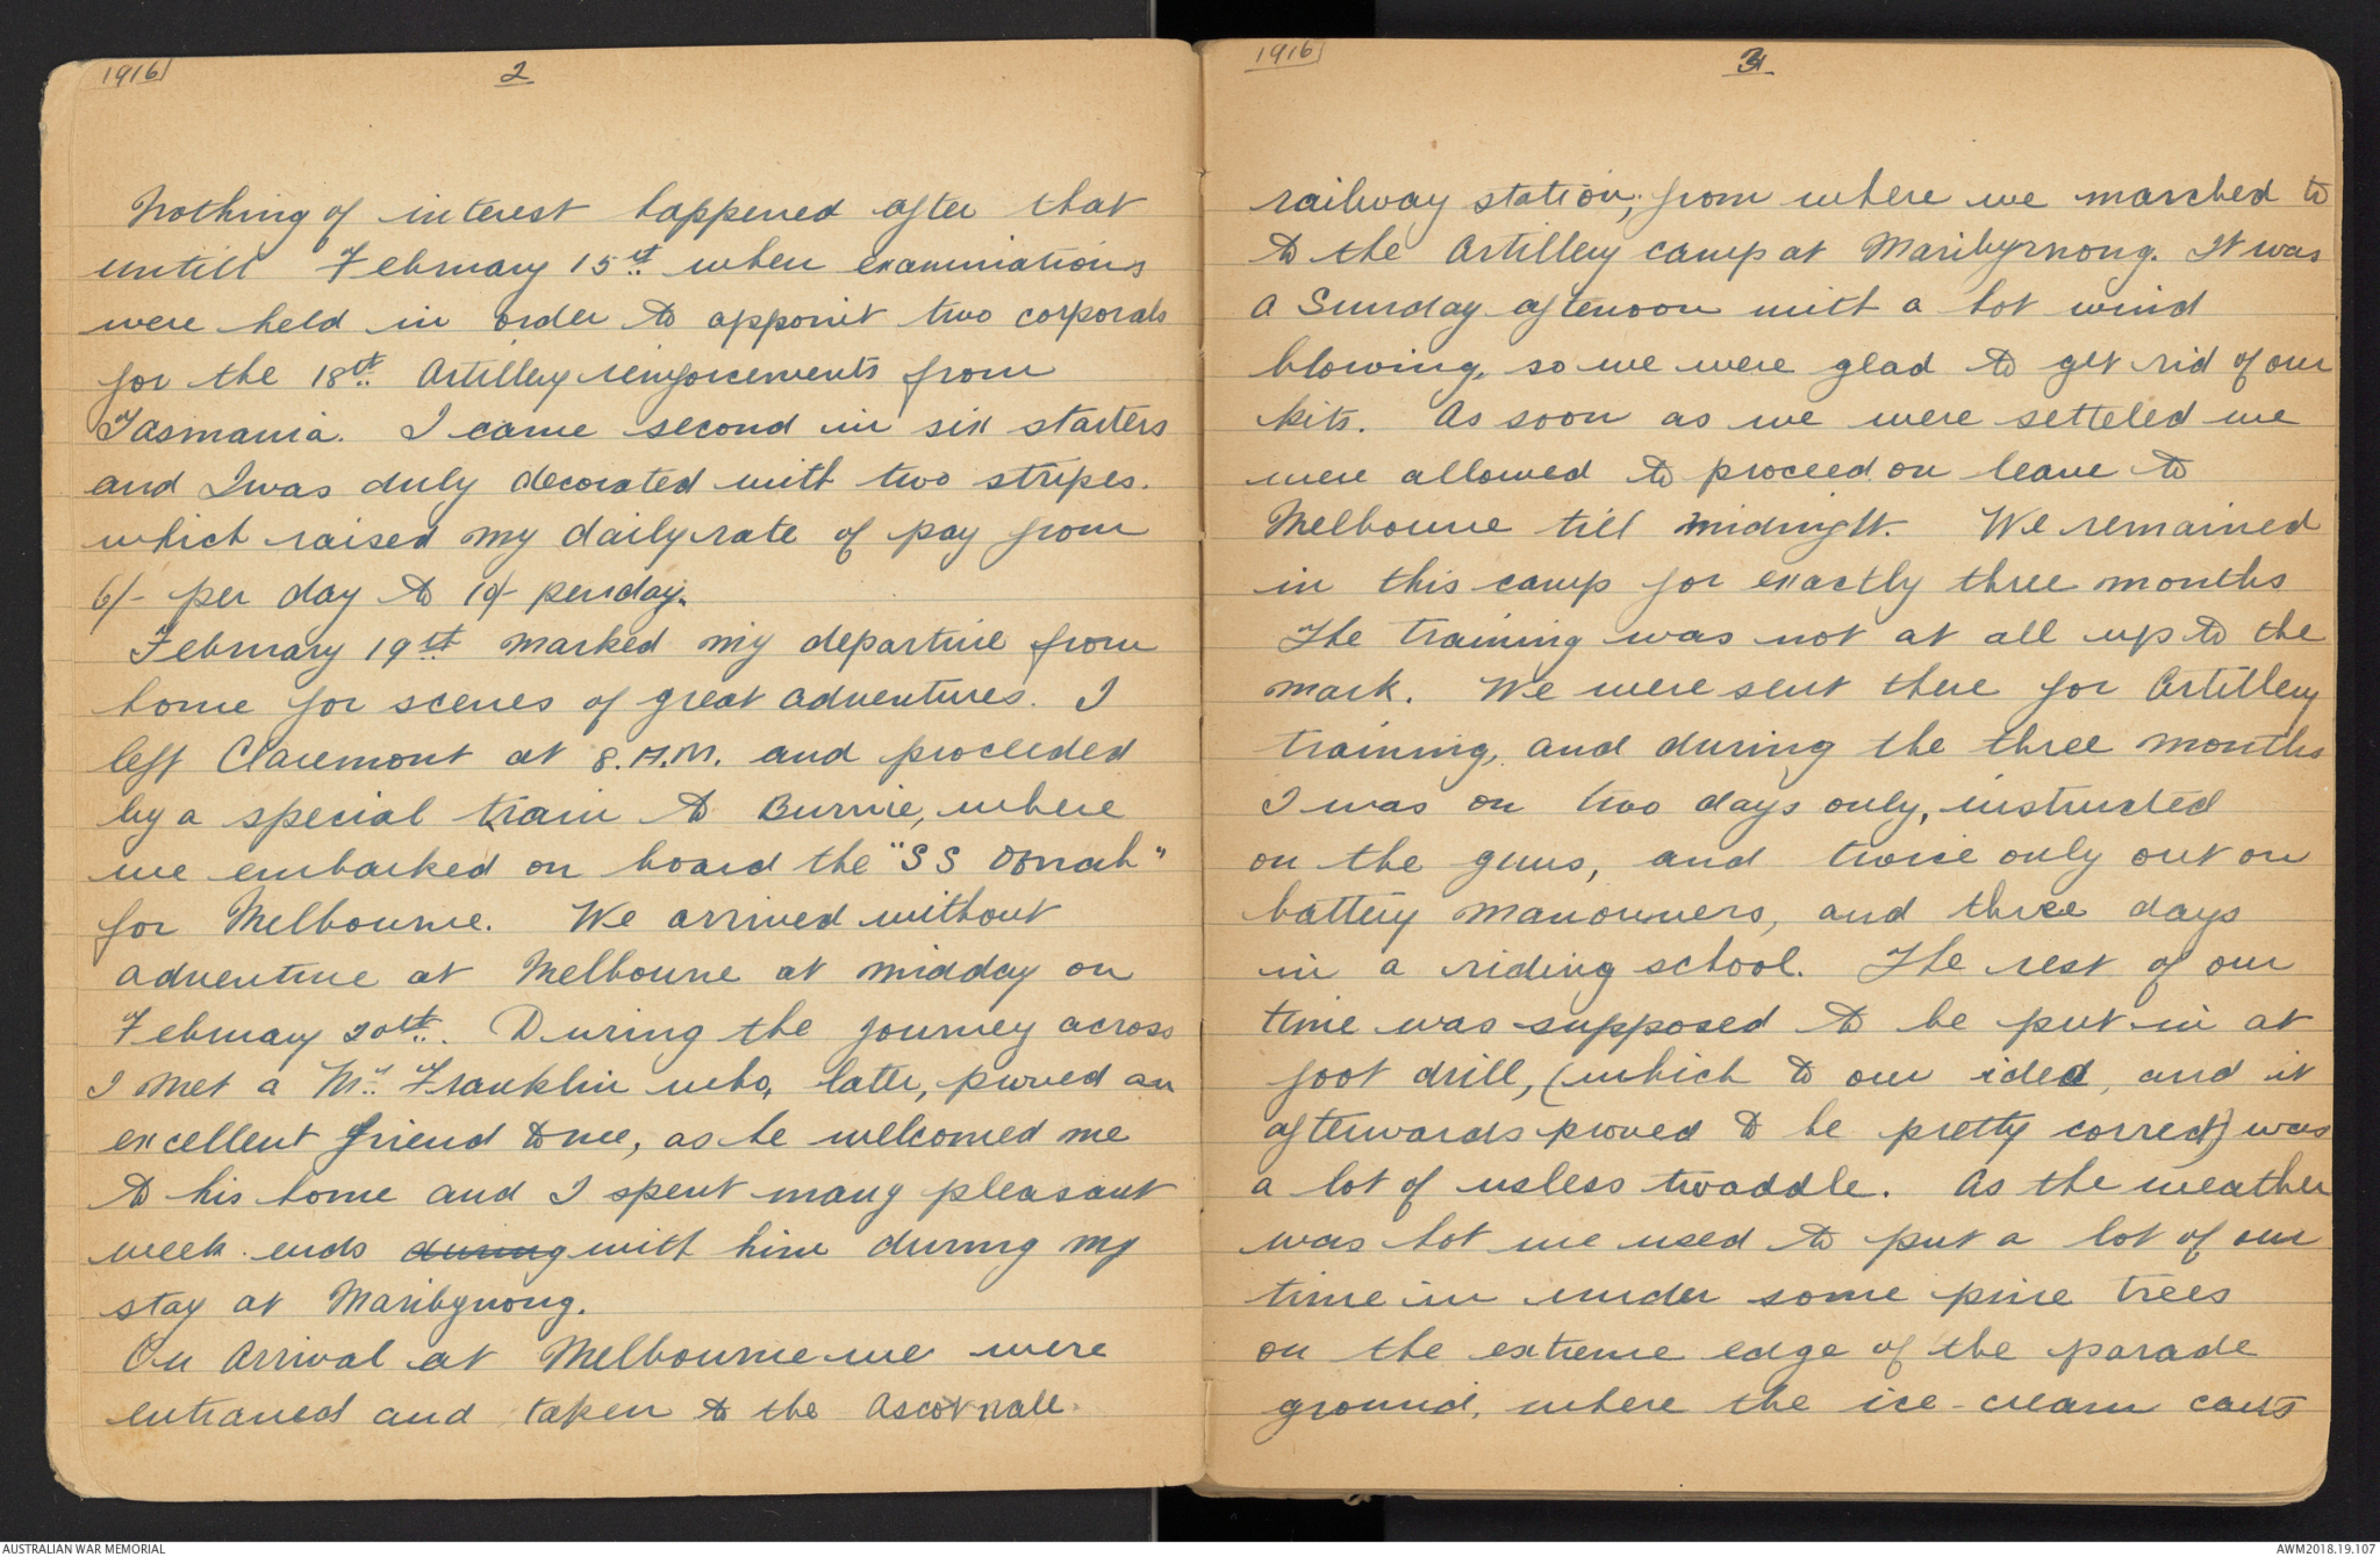 1916
2
Nothing of interest happened after that
untill February 15th when examinations
were held in order to appoint two corporals
for the 18th Artillery reinforcements from
Tasmania. I came second in six starters
and I was duly decorated with two stripes.
which raised my daily rate of pay from
6/- per day to 10/- per day.
February 19th marked my departure from
home for scenes of great adventures. I
left Claremont at 8.A.M. and proceeded
by a special train to Burnie, where
we embarked on board the "SS Oonah"
for Melbourne. We arrived without
adventure at Melbourne at midday on
February 20th. During the journey across
I met a Mr Franklin who, later, proved an
excellent friend to me, as he welcomed me
to his home and I spent many pleasant
week ends during with him during my
stay at Maribynong.
On Arrival at Melbourne we were
entrained and taken to the Ascotvale
1916
3
railway station; from where we marched to
to the Artillery camp at Maribyrnong. It was
a Sunday afternoon with a hot wind
blowing, so we were glad to get rid of our
kits. As soon as we were setteled we
were allowed to proceed on leave to
Melbourne till midnight. We remained
in this camp for exactly three months
The training was not at all up to the
mark. We were sent there for Artillery
training, and during the three months
I was on two days only, instructed
on the guns, and twice only out on
battery manouvers, and three days
in a riding school. The rest of our
time was supposed to be put in at
foot drill, (which to our idea, and it
afterwards proved to be pretty correct) was
a lot of usless twaddle. As the weather
was hot we used to put a lot of our
time in under some pine trees
on the extreme edge of the parade
ground, where the ice-cream carts
AUSTRALIAN WAR MEMORIAL
AWM2018.19.107